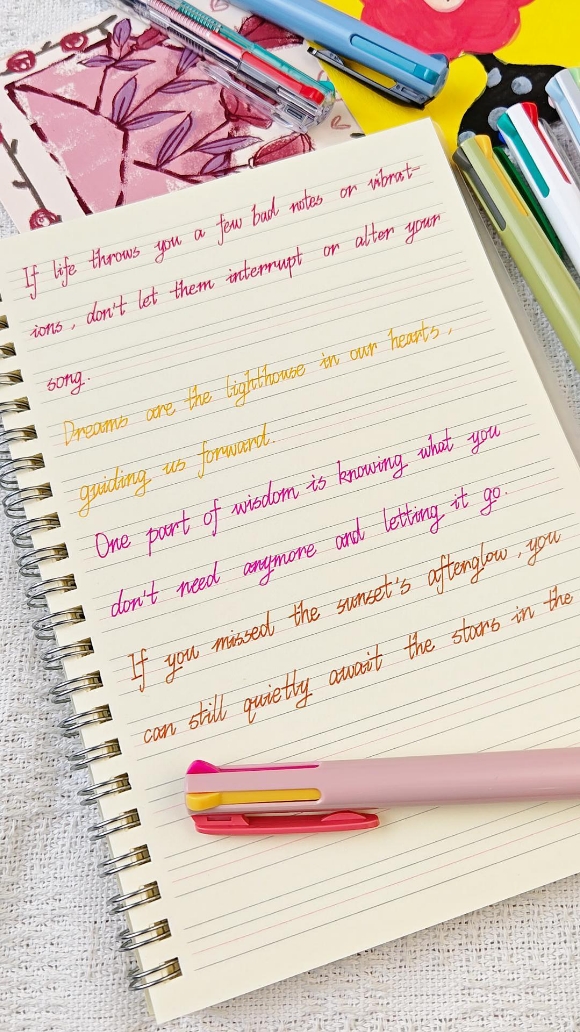 If life throws you a few bad notes or vibrat-
ions, don't let them interrupt or alter your
song.
Dreams are the lighthouse in our hearts,
guiding us forward.
One part of wisdom is knowing what you
don't need anymore and letting it go.
If you missed the sunset's afterglow, you
can still quietly await the stars in the